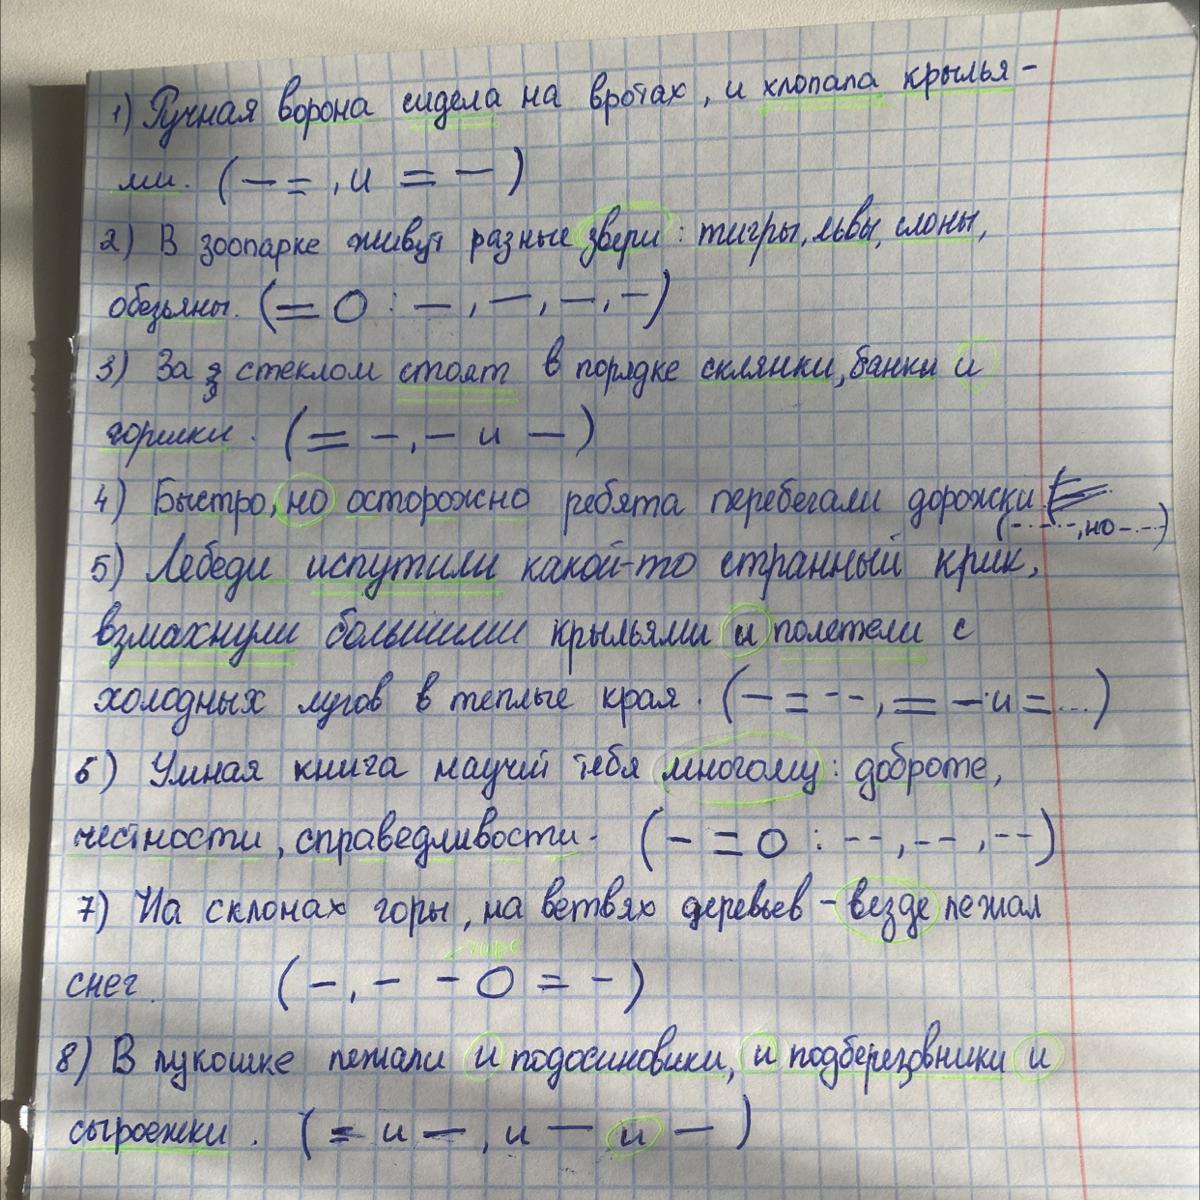 1) Ручная ворона сидела на вротах, и хлопала крылья-
ми. (— =, и = —)
2) В зоопарке живут разные звери: тигры, львы, слоны,
обезьяны. (= О : —, —, —, —)
3) За стеклом стоят в порядке склянки, банки и
горшки. (= —, — и —)
4) Быстро, но осторожно ребята перебегали дорожки.
(-·-·-, но -·-·)
5) Лебеди испутили какой-то странный крик,
взмахнули большими крыльями и полетели с
холодных лугов в теплые края. (— = --, = — и = ...)
6) Умная книга научит тебя многому: доброте,
честности, справедливости. (— = О : --, --, --)
7) На склонах горы, на ветвях деревьев - везде лежал
снег. (—, — - О = —)
8) В лукошке лежали и подосиновики, и подберезовники и
сыроежки. (= и —, и — и —)